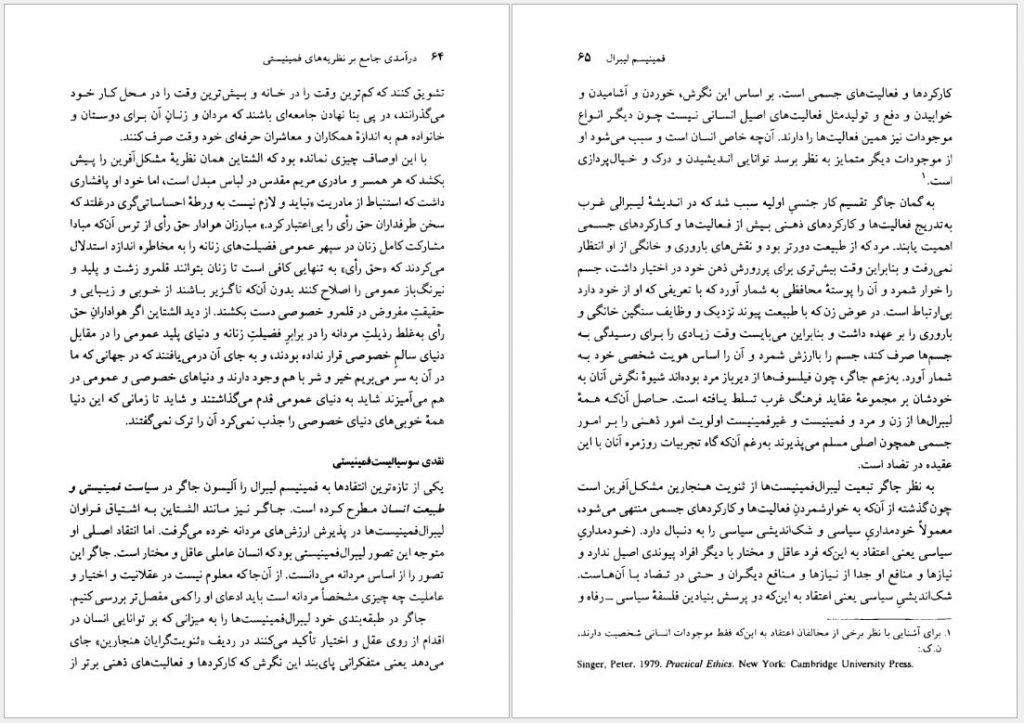 ۶۴ درآمدی جامع بر نظریه‌های فمینیستی
تشویق کنند که کم‌ترین وقت را در خانه و بیش‌ترین وقت را در محل کار خود
می‌گذرانند، در پی بنا نهادن جامعه‌ای باشند که مردان و زنانِ آن برای دوستان و
خانواده هم به اندازهٔ همکاران و معاشران حرفه‌ای خود وقت صرف کنند.
با این اوصاف چیزی نمانده بود که الشتاین همان نظریهٔ مشکل‌آفرین را پیش
بکشد که هر همسر و مادری مریم مقدس در لباس مبدل است، اما خود او پافشاری
داشت که استنباط از مادریت «نباید و لازم نیست به ورطهٔ احساساتی‌گری درغلتد که
سخن طرفداران حق رأی را بی‌اعتبار کرد.» مبارزان هوادار حق رأی از ترس آن‌که مبادا
مشارکت کامل زنان در سپهر عمومی فضیلت‌های زنانه را به مخاطره اندازد استدلال
می‌کردند که «حق رأی» به تنهایی کافی است تا زنان بتوانند قلمرو زشت و پلید و
نیرنگ‌باز عمومی را اصلاح کنند بدون آن‌که ناگزیر باشند از خوبی و زیبایی و
حقیقتِ مفروض در قلمرو خصوصی دست بکشند. از دید الشتاین اگر هوادارانِ حق
رأی به‌غلط رذیلتِ مردانه را در برابرِ فضیلتِ زنانه و دنیای پلید عمومی را در مقابل
دنیای سالمِ خصوصی قرار نداده بودند، و به جای آن درمی‌یافتند که در جهانی که ما
در آن به سر می‌بریم خیر و شر با هم وجود دارند و دنیاهای خصوصی و عمومی در
هم می‌آمیزند شاید به دنیای عمومی قدم می‌گذاشتند و شاید تا زمانی که این دنیا
همهٔ خوبی‌های دنیای خصوصی را جذب نمی‌کرد آن را ترک نمی‌گفتند.
نقدی سوسیالیست‌فمینیستی
یکی از تازه‌ترین انتقادها به فمینیسم لیبرال را آلیسون جاگر در سیاست فمینیستی و
طبیعت انسان مطرح کرده است. جاگر نیز مانند الشتاین به اشتیاق فراوان
لیبرال‌فمینیست‌ها در پذیرش ارزش‌های مردانه خرده می‌گرفت. اما انتقاد اصلی او
متوجه این تصور لیبرال‌فمینیستی بود که انسان عاملی عاقل و مختار است. جاگر این
تصور را از اساس مردانه می‌دانست. از آن‌جا که معلوم نیست در عقلانیت و اختیار و
عاملیت چه چیزی مشخصاً مردانه است باید ادعای او را کمی مفصل‌تر بررسی کنیم.
جاگر در طبقه‌بندی خود لیبرال‌فمینیست‌ها را به میزانی که بر توانایی انسان در
اقدام از روی عقل و اختیار تأکید می‌کنند در ردیف «ثنویت‌گرایان هنجارین» جای
می‌دهد یعنی متفکرانی پای‌بند این نگرش که کارکردها و فعالیت‌های ذهنی برتر از
فمینیسم لیبرال ۶۵
کارکردها و فعالیت‌های جسمی است. بر اساس این نگرش، خوردن و آشامیدن و
خوابیدن و دفع و تولیدمثل فعالیت‌های اصیل انسانی نیست چون دیگر انواع
موجودات نیز همین فعالیت‌ها را دارند. آن‌چه خاص انسان است و سبب می‌شود او
از موجودات دیگر متمایز به نظر برسد توانایی اندیشیدن و درک و خیال‌پردازی
است.۱
به گمان جاگر تقسیم کار جنسیِ اولیه سبب شد که در اندیشهٔ لیبرالی غرب
به‌تدریج فعالیت‌ها و کارکردهای ذهنی بیش از فعالیت‌ها و کارکردهای جسمی
اهمیت یابند. مرد که از طبیعت دورتر بود و نقش‌های باروری و خانگی از او انتظار
نمی‌رفت و بنابراین وقت بیش‌تری برای پرورش ذهن خود در اختیار داشت، جسم
را خوار شمرد و آن را پوستهٔ محافظی به شمار آورد که با تعریفی که او از خود دارد
بی‌ارتباط است. در عوض زن که با طبیعت پیوند نزدیک و وظایف سنگین خانگی و
باروری را بر عهده داشت و بنابراین می‌بایست وقت زیادی را برای رسیدگی به
جسم‌ها صرف کند، جسم را باارزش شمرد و آن را اساس هویت شخصی خود به
شمار آورد. به‌زعم جاگر، چون فیلسوف‌ها از دیرباز مرد بوده‌اند شیوهٔ نگرش آنان به
خودشان بر مجموعهٔ عقاید فرهنگ غرب تسلط یافته است. حاصل آن‌که همهٔ
لیبرال‌ها از زن و مرد و فمینیست و غیرفمینیست اولویت امور ذهنی را بر امور
جسمی همچون اصلی مسلم می‌پذیرند به‌رغم آن‌که گاه تجربیات روزمره آنان با این
عقیده در تضاد است.
به نظر جاگر تبعیت لیبرال‌فمینیست‌ها از ثنویت هنجارین مشکل‌آفرین است
چون گذشته از آن‌که به خوارشمردنِ فعالیت‌ها و کارکردهای جسمی منتهی می‌شود،
معمولاً خودمداریِ سیاسی و شک‌اندیشی سیاسی را به دنبال دارد. (خودمداریِ
سیاسی یعنی اعتقاد به این‌که فرد عاقل و مختار با دیگر افراد پیوندی اصیل ندارد و
نیازها و منافع او جدا از نیازها و منافع دیگران و حتی در تضاد با آن‌هاست.
شک‌اندیشیِ سیاسی یعنی اعتقاد به این‌که دو پرسش بنیادین فلسفهٔ سیاسی ــ رفاه و
۱. برای آشنایی با نظر برخی از مخالفان اعتقاد به این‌که فقط موجودات انسانی شخصیت دارند،
ن.ک.:
Singer, Peter. 1979. Practical Ethics. New York: Cambridge University Press.